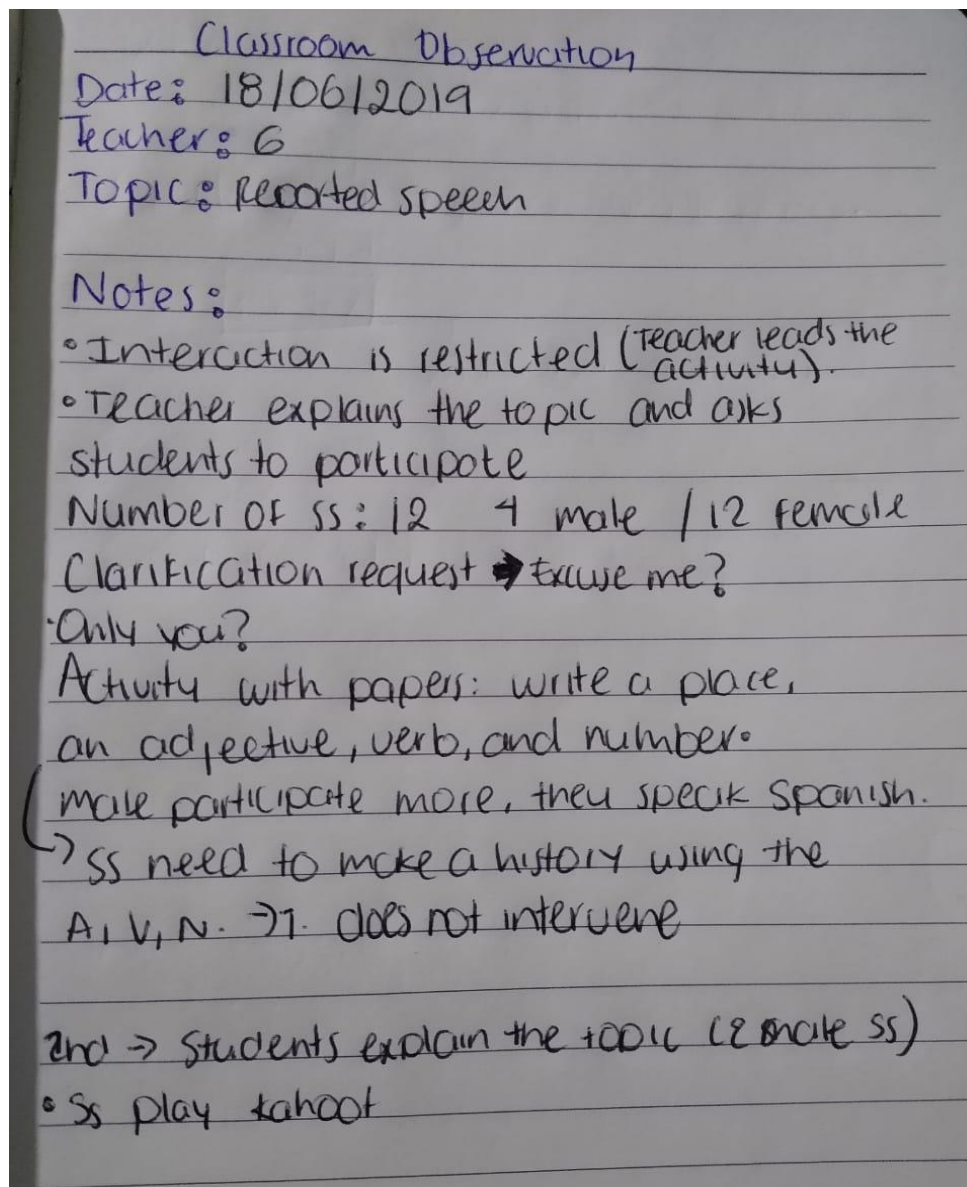 Classroom Observation
Date: 18/06/2019
Teacher: 6
Topic: Reported speech
Notes:
• Interaction is restricted (Teacher leads the
activity).
• Teacher explains the topic and asks
students to participate
Number of ss: 12 4 male / 12 female
Clarification request → Excuse me?
· Only you?
Activity with papers: write a place,
an adjective, verb, and number.
male participate more, they speak Spanish.
→ SS need to make a history using the
A, V, N. → T. does not intervene
2nd → Students explain the topic (2 male ss)
• Ss play kahoot